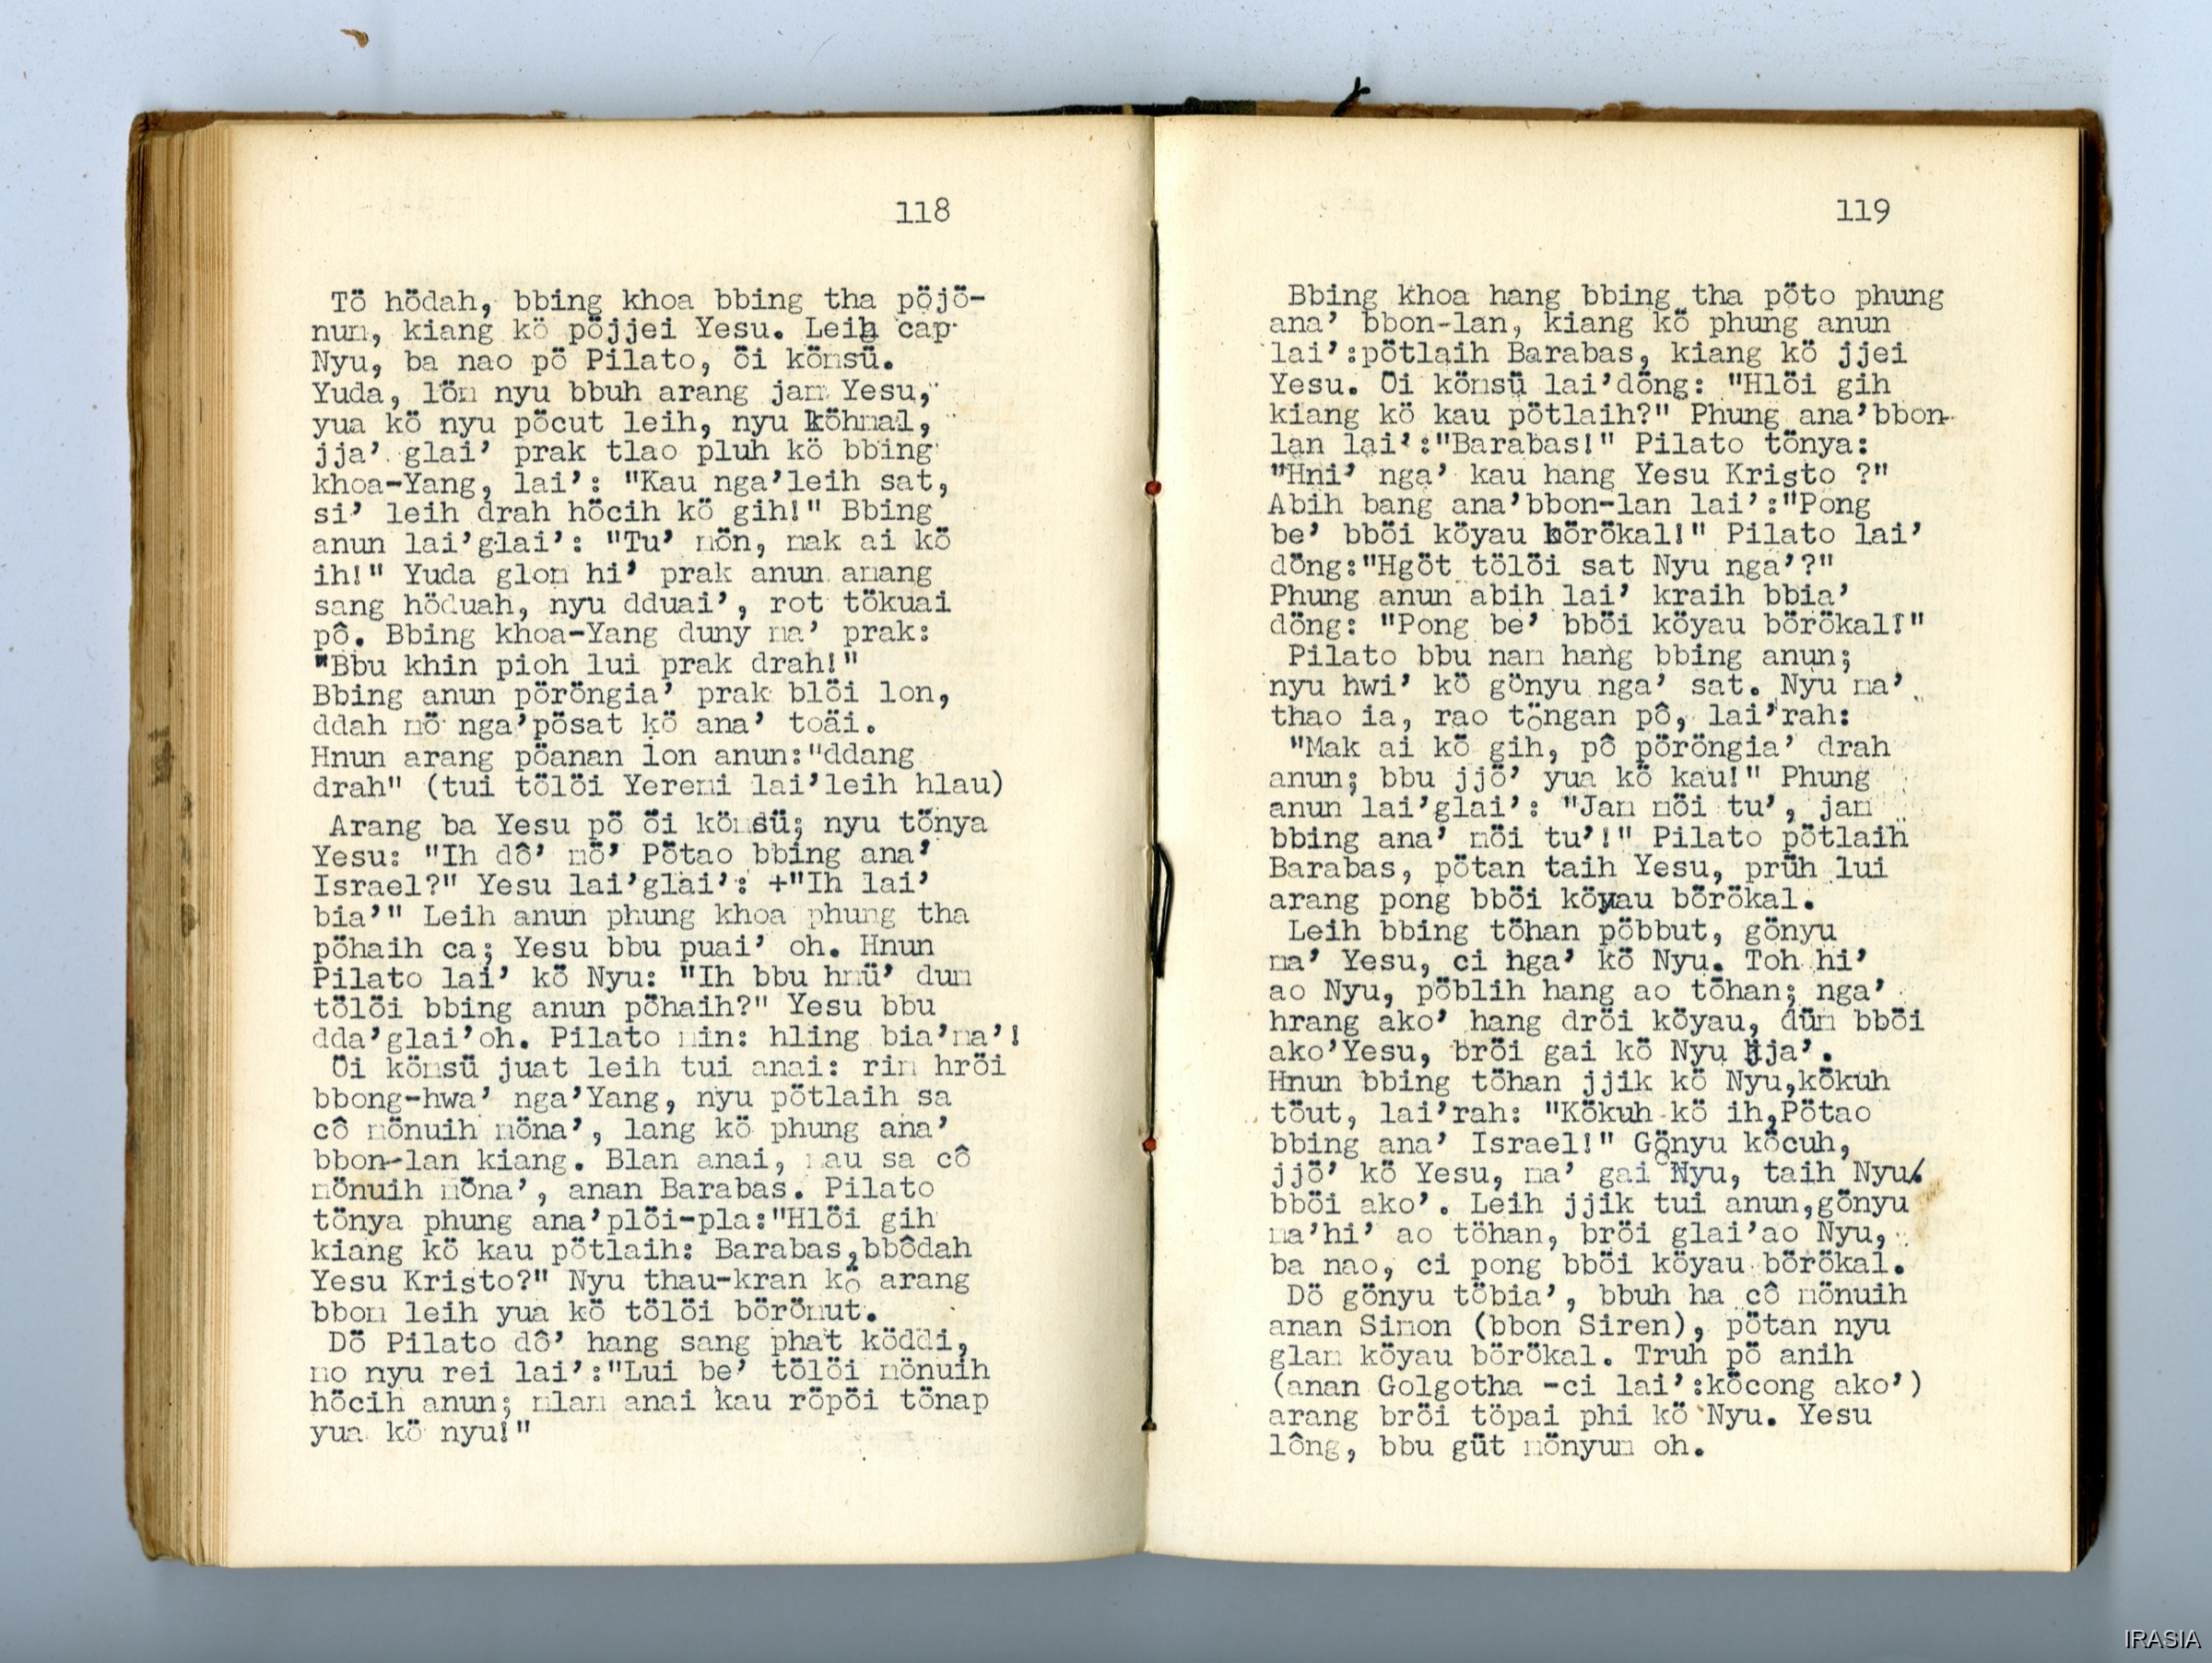 118
Tö hödah, bbing khoa bbing tha pöjö-
num, kiang kö pöjjei Yesu. Leih cap
Nyu, ba nao pö Pilato, öi könsü.
Yuda, löm nyu bbuh arang jam Yesu,
yua kö nyu pöcut leih, nyu köhmal,
jja' glai' prak tlao pluh kö bbing
khoa-Yang, lai': "Kau nga'leih sat,
si' leih drah höcih kö gih!" Bbing
anun lai'glai': "Tu' mön, mak ai kö
ih!" Yuda glom hi' prak anun amang
sang höduah, nyu dduai', rot tökuai
pô. Bbing khoa-Yang duny ma' prak:
"Bbu khin pioh lui prak drah!"
Bbing anun pöröngia' prak blöi lon,
ddah mö nga'pösat kö ana' toäi.
Hnun arang pöanan lon anun:"ddang
drah" (tui tölöi Yeremi lai'leih hlau)
Arang ba Yesu pö öi könsü; nyu tönya
Yesu: "Ih dô' mö' Pötao bbing ana'
Israel?" Yesu lai'glai': +"Ih lai'
bia'" Leih anun phung khoa phung tha
pöhaih ca; Yesu bbu puai' oh. Hnun
Pilato lai' kö Nyu: "Ih bbu hmü' dum
tölöi bbing anun pöhaih?" Yesu bbu
dda'glai'oh. Pilato min: hling bia'ma'!
Öi könsü juat leih tui anai: rim hröi
bbong-hwa' nga'Yang, nyu pötlaih sa
cô mönuih möna', lang kö phung ana'
bbon-lan kiang. Blan anai, mau sa cô
mönuih möna', anan Barabas. Pilato
tönya phung ana'plöi-pla:"Hlöi gih
kiang kö kau pötlaih: Barabas,bbôdah
Yesu Kristo?" Nyu thau-kran kö arang
bbom leih yua kö tölöi börömut.
Dö Pilato dô' hang sang phat köddi,
mo nyu rei lai':"Lui be' tölöi mönuih
höcih anun; mlam anai kau röpöi tönap
yua kö nyu!"
119
Bbing khoa hang bbing tha pöto phung
ana' bbon-lan, kiang kö phung anun
lai':pötlaih Barabas, kiang kö jjei
Yesu. Öi könsü lai'döng: "Hlöi gih
kiang kö kau pötlaih?" Phung ana'bbon-
lan lai':"Barabas!" Pilato tönya:
"Hni' nga' kau hang Yesu Kristo ?"
Abih bang ana'bbon-lan lai':"Pong
be' bböi köyau börökal!" Pilato lai'
döng:"Hgöt tölöi sat Nyu nga'?"
Phung anun abih lai' kraih bbia'
döng: "Pong be' bböi köyau börökal!"
Pilato bbu nam hang bbing anun;
nyu hwi' kö gönyu nga' sat. Nyu ma'
thao ia, rao töngan pô, lai'rah:
"Mak ai kö gih, pô pöröngia' drah
anun; bbu jjö' yua kö kau!" Phung
anun lai'glai': "Jam möi tu', jam
bbing ana' möi tu'!" Pilato pötlaih
Barabas, pötan taih Yesu, prüh lui
arang pong bböi köyau börökal.
Leih bbing töhan pöbbut, gönyu
ma' Yesu, ci nga' kö Nyu. Toh hi'
ao Nyu, pöblih hang ao töhan; nga'
hrang ako' hang dröi köyau, düm bböi
ako'Yesu, bröi gai kö Nyu jja'.
Hnun bbing töhan jjik kö Nyu,kökuh
töut, lai'rah: "Kökuh kö ih,Pötao
bbing ana' Israel!" Gönyu köcuh,
jjö' kö Yesu, ma' gai Nyu, taih Nyu
bböi ako'. Leih jjik tui anun,gönyu
ma'hi' ao töhan, bröi glai'ao Nyu,
ba nao, ci pong bböi köyau börökal.
Dö gönyu töbia', bbuh ha cô mönuih
anan Simon (bbon Siren), pötan nyu
glam köyau börökal. Truh pö anih
(anan Golgotha -ci lai':köcong ako')
arang bröi töpai phi kö Nyu. Yesu
lông, bbu güt mönyum oh.
IRASIA